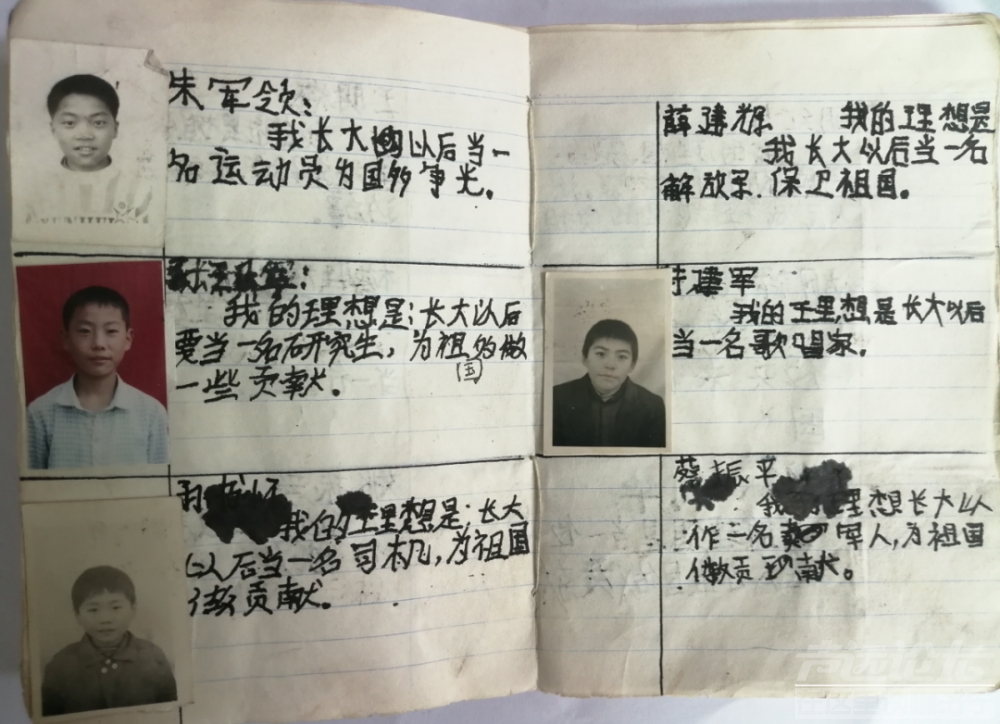 朱军领:
我长大以后当一
名运动员为国争光。
我的理想是:长大以后
要当一名研究生,为祖的做
(国)
一些贡献。
我的理想是:长大
以后当一名司机,为祖国
做贡献。
薛建辉 我的理想是
我长大以后当一名
解放军.保卫祖国。
建军
我的理想是长大以后
当一名歌唱家。
蔡振平
我的理想长大以
作一名军人,为祖国
做贡献。